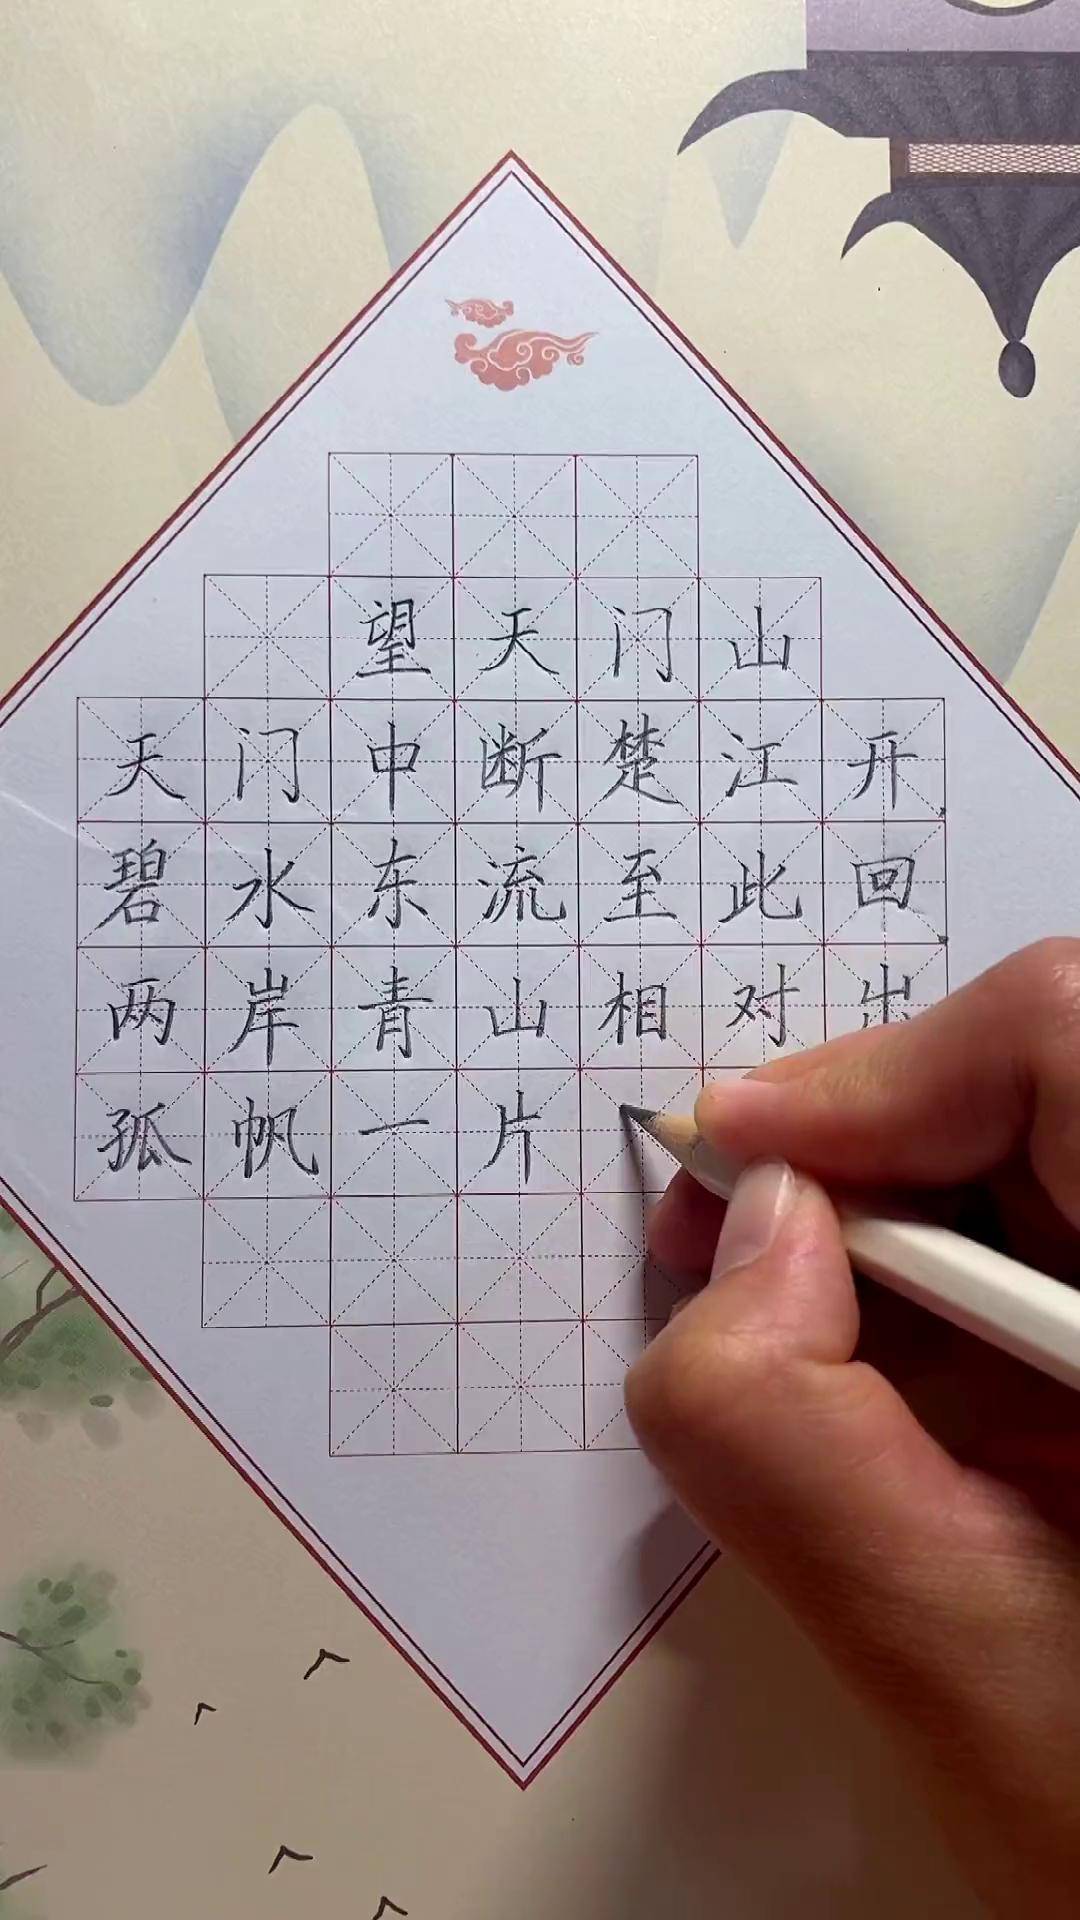 望天门山
天门中断楚江开
碧水东流至此回
两岸青山相对出
孤帆一片